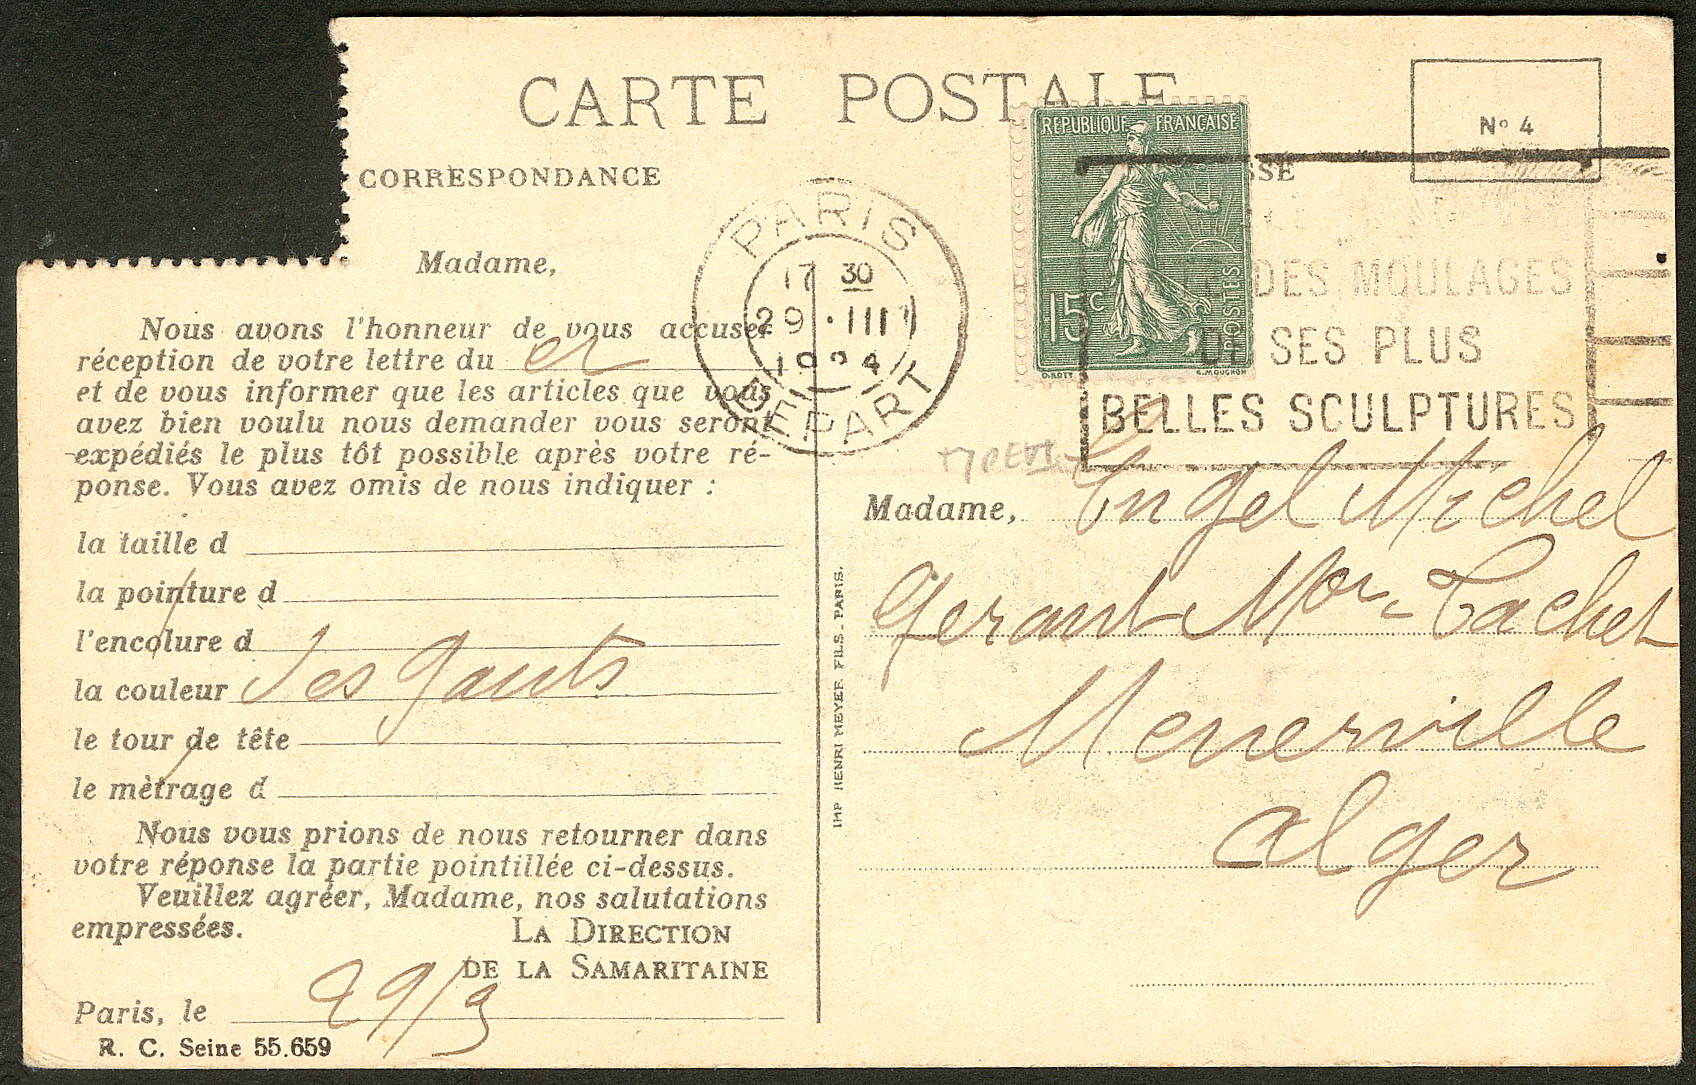 CARTE POSTALE
CORRESPONDANCE
N° 4
RÉPUBLIQUE FRANÇAISE
15c
POSTES
O. ROTY E. MOUCHON
PARIS
17 30
29 · III
1924
DEPART
DES MOULAGES
DE SES PLUS
BELLES SCULPTURES
Madame,
Nous avons l'honneur de vous accuser
réception de votre lettre du
et de vous informer que les articles que vous
avez bien voulu nous demander vous seront
expédiés le plus tôt possible après votre ré-
ponse. Vous avez omis de nous indiquer :
la taille d
la pointure d
l'encolure d
la couleur des gants
le tour de tête
le métrage d
Nous vous prions de nous retourner dans
votre réponse la partie pointillée ci-dessus.
Veuillez agréer, Madame, nos salutations
empressées.
LA DIRECTION
DE LA SAMARITAINE
Paris, le 29/3
R. C. Seine 55.659
IMP HENRI MEYER FILS - PARIS.
Madame, Engel Michel
Gerant Mon Tachet
Menerville
Alger